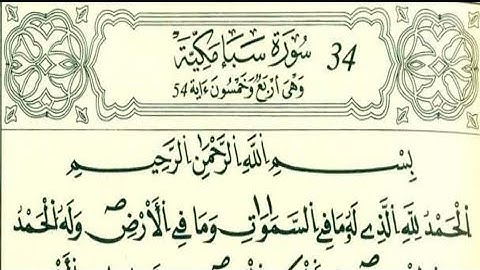 34 سُورَةُ سَبَإٍ مَكِّيَّةٌ
وَهِيَ أَرْبَعٌ وَخَمْسُونَ ءَايَة 54
بِسْمِ اِللَّهِ اِلرَّحْمَٰنِ اِلرَّحِيمِ
اِلْحَمْدُ لِلهِ اِلذِے لَهُۥ مَا فِے اِلسَّمَٰوَٰتِ وَمَا فِے اِلْأَرْضِ وَلَهُ اُلْحَمْدُ